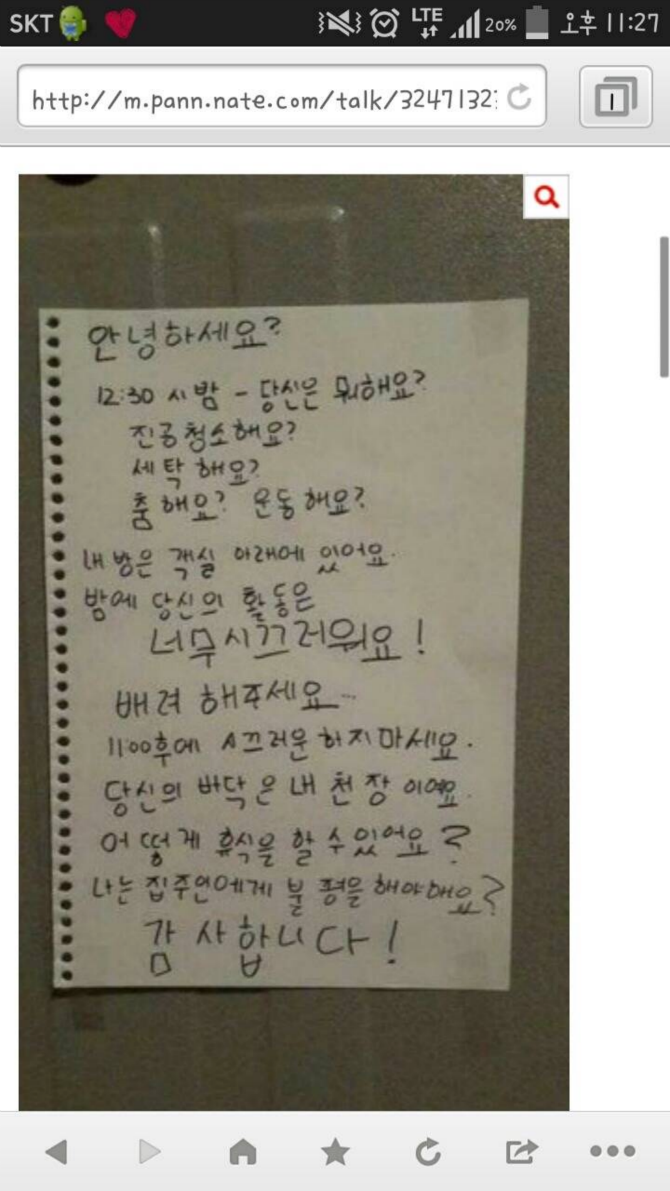 SKT LTE 20% 오후 11:27
http://m.pann.nate.com/talk/32471327
1
안녕하세요?
12:30 시 밤 - 당신은 뭐해요?
진공청소해요?
세탁해요?
춤해요? 운동해요?
내 방은 객실 아래에 있어요.
밤에 당신의 활동은
너무시끄러워요!
배려 해주세요...
11:00후에 시끄러운 하지마세요.
당신의 바닥은 내 천장 이예요.
어떻게 휴식을 할 수 있어요?
나는 집주인에게 불평을 해야해요?
감사합니다!